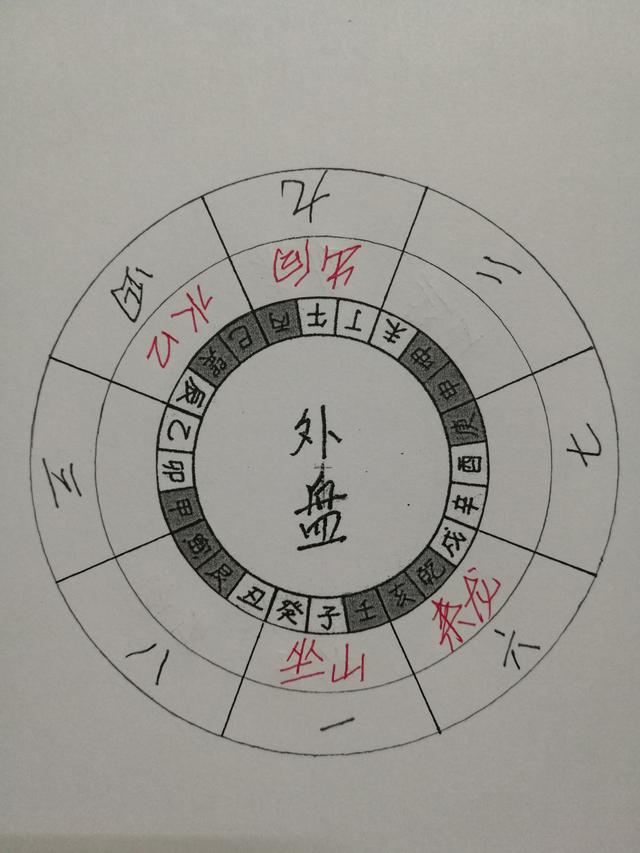 九
二
七
六
一
八
三
四
立向
来龙
坐山
水口
午丁未坤申庚酉辛戌乾亥壬子癸丑艮寅甲卯乙辰巽巳丙
外
盘